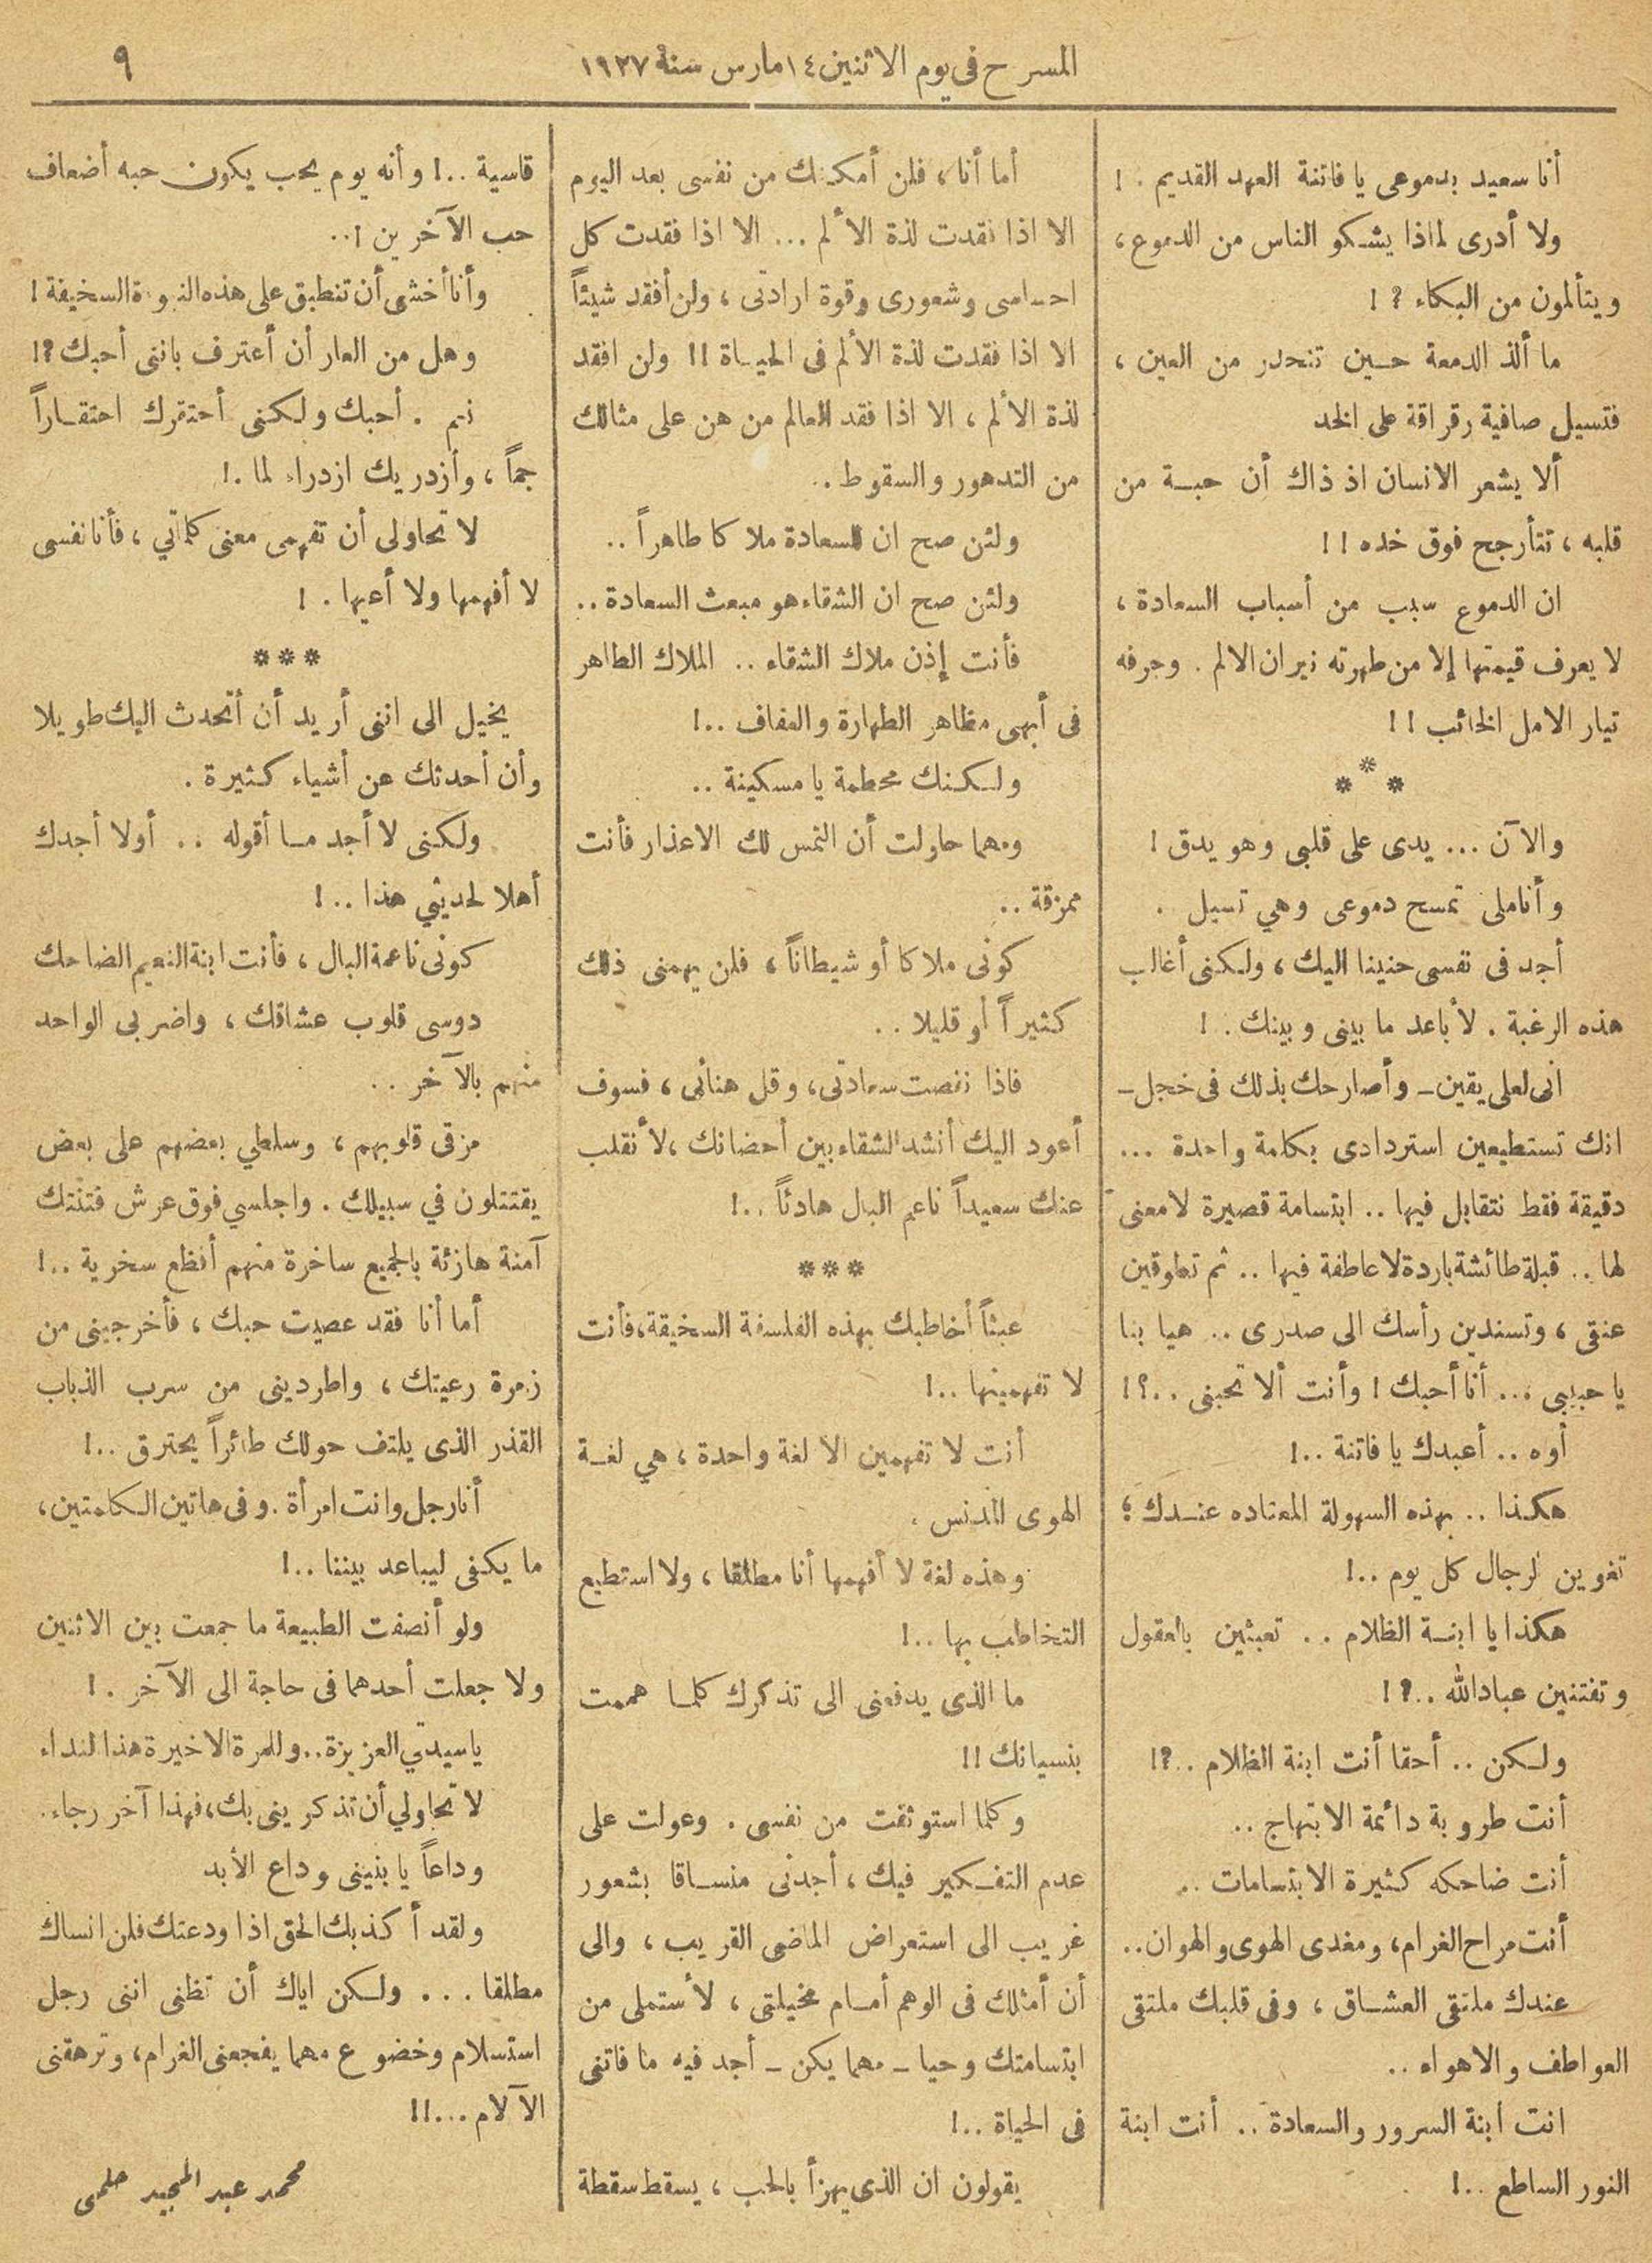 المسرح فى يوم الاثنين ١٤ مارس سنة ١٩٢٧
٩
أنا سعيد بدموعى يا فاتنة العهد القديم . !
ولا أدرى لماذا يشكو الناس من الدموع ،
ويتألمون من البكاء ؟ !
ما ألذ الدمعة حين تنحدر من العين ،
فتسيل صافية رقراقة على الخد
ألا يشعر الانسان اذ ذاك أن حبة من
قلبه ، تتأرجح فوق خده ! !
ان الدموع سبب من أسباب السعادة ،
لا يعرف قيمتها إلا من طهرته نيران الالم . وجرفه
تيار الامل الخائب ! !
* * *
والآن ... يدى على قلبى وهو يدق !
وأناملى تمسح دموعى وهي تسيل .
أجد فى نفسى حنينا اليك ، ولكنى أغالب
هذه الرغبة . لأباعد ما بينى وبينك . !
انى لعلى يقين ـ وأصارحك بذلك فى خجل ـ
انك تستطيعين استردادى بكلمة واحدة ...
دقيقة فقط نتقابل فيها .. ابتسامة قصيرة لا معنى
لها .. قبلة طائشة باردة لا عاطفة فيها .. ثم تطوقين
عنقى ، وتسندين رأسك الى صدرى .. هيا بنا
يا حبيبى ... أنا أحبك ! وأنت ألا تحبنى ..؟ !
أوه .. أعبدك يا فاتنة ..!
هكذا .. بهذه السهولة المعتاده عندك ؛
تغوين الرجال كل يوم ..!
هكذا يا ابنة الظلام .. تعبثين بالعقول
وتفتنين عباد الله ..؟ !
ولكن .. أحقا أنت ابنة الظلام ..؟!
أنت طروبة دائمة الابتهاج ..
أنت ضاحكه كثيرة الابتسامات ..
أنت مراح الغرام ، ومغدى الهوى والهوان ..
عندك ملتقى العشاق ، وفى قلبك ملتقى
العواطف والاهواء ..
انت ابنة السرور والسعادة .. أنت ابنة
النور الساطع ..!
أما أنا ، فلن أمكنك من نفسى بعد اليوم
الا اذا فقدت لذة الألم ... الا اذا فقدت كل
احساسى وشعورى وقوة ارادتى ، ولن أفقد شيئاً
الا اذا فقدت لذة الألم فى الحياة !! ولن افقد
لذة الألم ، الا اذا فقد العالم من هن على مثالك
من التدهور والسقوط .
ولئن صح ان للسعادة ملاكا طاهراً ..
ولئن صح ان الشقاء هو مبعث السعادة ..
فأنت إذن ملاك الشقاء .. الملاك الطاهر
فى أبهى مظاهر الطهارة والعفاف ..!
ولكنك محطمة يا مسكينة ..
ومهما حاولت أن التمس لك الاعذار فأنت
ممزقة ..
كونى ملاكا أو شيطاناً ، فلن يهمنى ذلك
كثيراً أو قليلا ..
فاذا نغصت سعادتى ، وقل هنائى ، فسوف
أعود اليك أنشد الشقاء بين أحضانك ، لأنقلب
عنك سعيداً ناعم البال هادئاً ..!
***
عبثاً أخاطبك بهذه الفلسفة السخيفة ، فأنت
لا تفهمينها ..!
أنت لا تفهمين الا لغة واحدة ، هي لغة
الهوى المدنس .
وهذه لغة لا أفهمها أنا مطلقا ، ولا استطيع
التخاطب بها ..!
ما الذى يدفعنى الى تذكرك كلما هممت
بنسيانك !!
وكلما استوثقت من نفسى . وعولت على
عدم التفكير فيك ، أجدنى منساقا بشعور
غريب الى استعراض الماضى القريب ، والى
أن أمثلك فى الوهم أمام مخيلتى ، لأستملى من
ابتسامتك وحيا ـ مهما يكن ـ أجد فيه ما فاتنى
فى الحياة ..!
يقولون ان الذى يهزأ بالحب ، يسقط سقطة
قاسية ..! وأنه يوم يحب يكون حبه أضعاف
حب الآخرين !..
وأنا أخشى أن تنطبق على هذه النبوءة السخيفة !
وهل من العار أن أعترف بانى أحبك ؟!
نعم . أحبك ولكنى أحتقرك احتقاراً
جماً ، وأزدريك ازدراء لما .!
لا تحاولى أن تفهمى معنى كلماتي ، فأنا نفسى
لا أفهمها ولا أعيها . !
***
يخيل الى اننى أريد أن أتحدث اليك طويلا
وأن أحدثك عن أشياء كثيرة .
ولكنى لا أجد ما أقوله .. أو لا أجدك
أهلا لحديثي هذا ..!
كونى ناعمة البال ، فأنت ابنة النعيم الضاحك
دوسى قلوب عشاقك ، واضربى الواحد
منهم بالآخر ..
مزقى قلوبهم ، وسلطي بعضهم على بعض
يقتتلون في سبيلك . واجلسي فوق عرش فتنتك
آمنة هازئة بالجميع ساخرة منهم أفظع سخرية ..!
أما أنا فقد عصيت حبك ، فأخرجينى من
زمرة رعيتك ، واطردينى من سرب الذباب
القذر الذى يلتف حولك طائراً يحترق ..!
أنا رجل وانت امرأة . وفى هاتين الكلمتين ،
ما يكفى ليباعد بيننا ..!
ولو أنصفت الطبيعة ما جمعت بين الاثنين
ولا جعلت أحدهما فى حاجة الى الآخر . !
يا سيدتي العزيزة .. وللمرة الاخيرة هذا النداء
لا تحاولي أن تذكرينى بك ، فهذا آخر رجاء .
وداعاً يا بنيتى وداع الأبد
ولقد أكذبك الحق اذا ودعتك فلن انساك
مطلقا ... ولكن اياك أن تظنى اننى رجل
استسلام وخضوع مهما يفجعنى الغرام ، وترهقنى
الآلام ...!!
محمد عبد المجيد حلمى